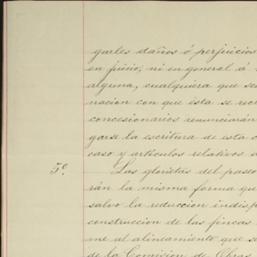 garles daños ó perjuicios
en juicio; ni en general á
alguna, cualquiera que se
nacion con que esta se rec
concesionarios renunciarán
garse la escritura de esta c
caso y artículos relativos
5º. Las glorietas del paseo
rán la misma forma que
salvo la reduccion indisp
construccion de las fincas
me al alineamiento que s
de la Comision de Obras